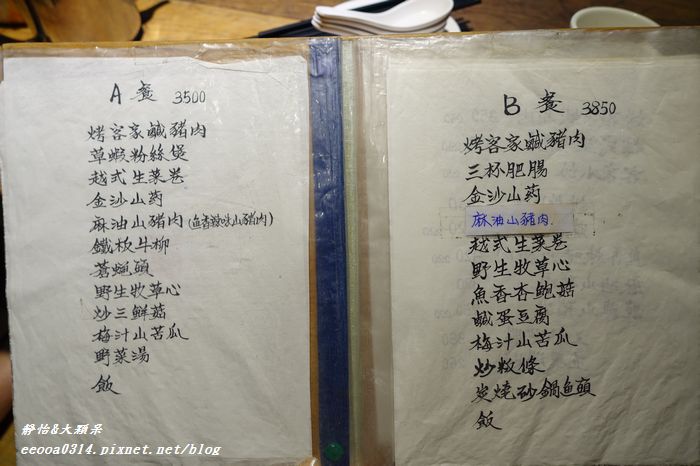 A 餐 3500
烤客家鹹豬肉
草蝦粉絲煲
越式生菜卷
金沙山药
麻油山豬肉(鱼香辣味山豬肉)
鐵板牛柳
蒼蠅頭
野生牧草心
炒三鮮菇
梅汁山苦瓜
野菜湯
飯
B 餐 3850
烤客家鹹豬肉
三杯肥腸
金沙山药
麻油山豬肉
越式生菜卷
野生牧草心
魚香杏鮑菇
鹹蛋豆腐
梅汁山苦瓜
炒粄條
炭燒砂鍋鱼頭
飯
靜怡&大顆呆
eeooa0314.pixnet.net/blog